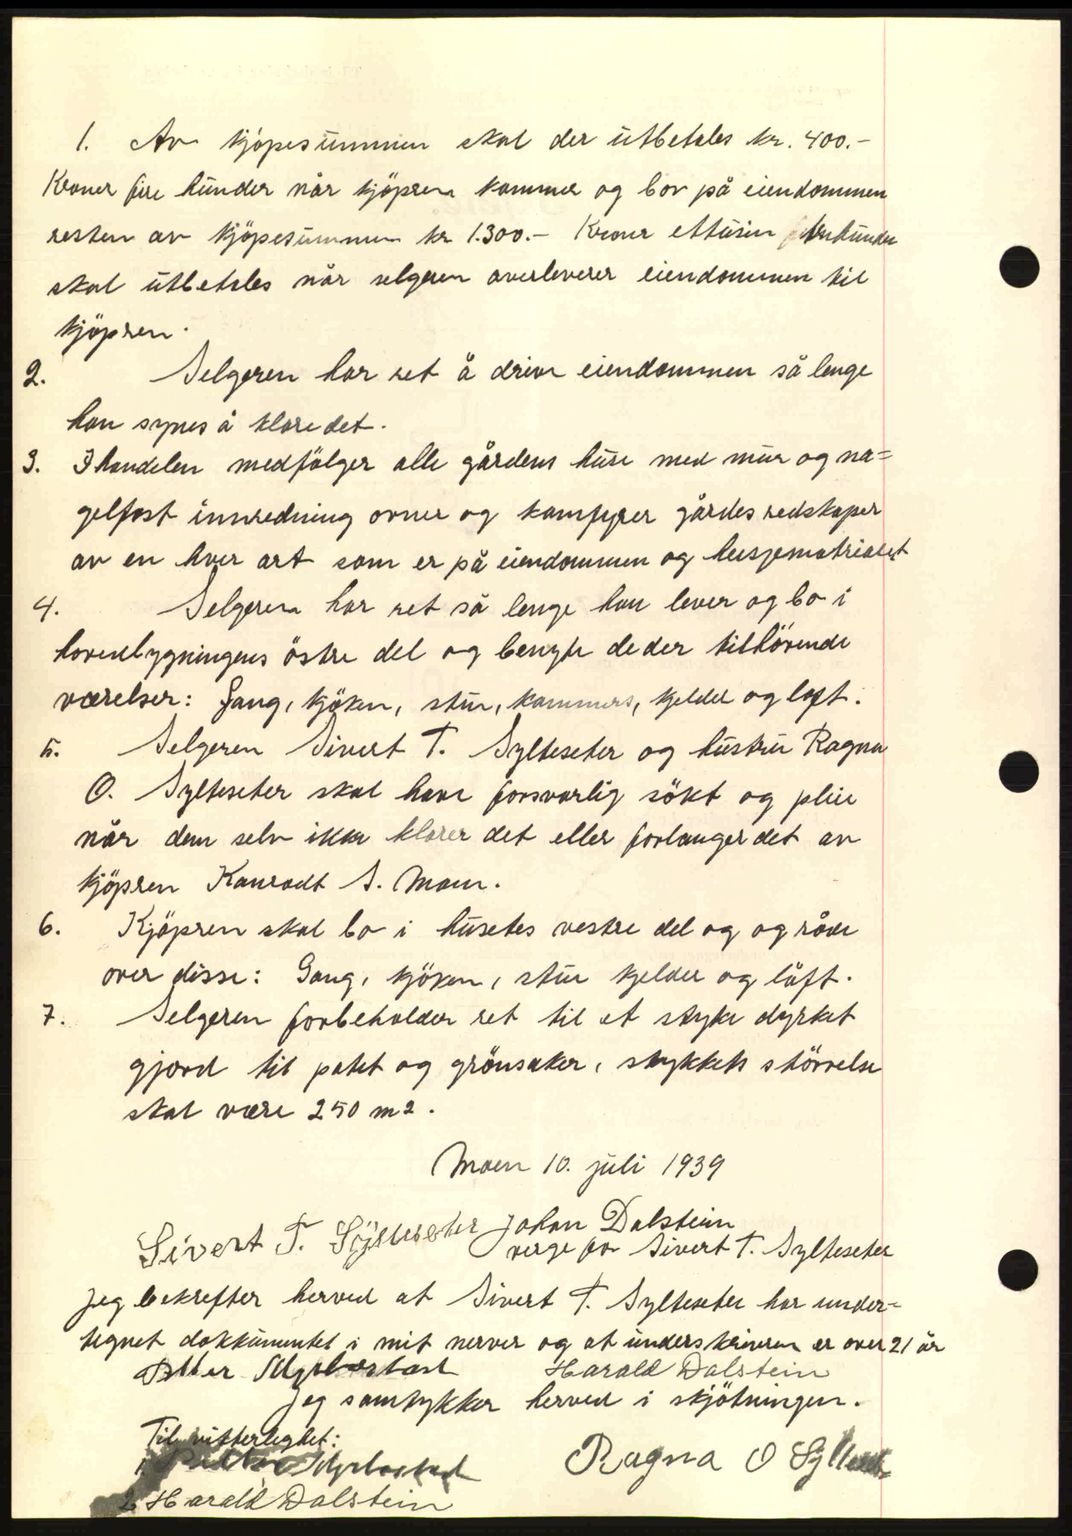 1. Av kjöpesummen skal der utbetales kr. 400.-
Kroner fire hunder når kjöpren kommer og bor på eiendommen
resten av kjöpesummen kr 1.300.- Kroner ettusin trehunder
skal utbetales når selgeren overleverer eiendommen til
kjöpren.
2. Selgeren har ret å drive eiendommen så lenge
han synes å klare det.
3. I handelen medfölger alle gårdens huse med mur og na=
gelfast innredning ovner og kamfyrer gårdes redskaper
av en hver art som er på eiendommen og hesjematrialet
4. Selgeren har ret så lenge han lever og bo i
hovedbygningens östre del og benytte de der tilhörende
værelser: Gang, kjöken, stue, kammers, kjelder og loft.
5. Selgeren Sivert T. Sylteseter og hustru Ragna
O. Sylteseter skal have forsvarlig sökt og pleie
når dem selv ikke klarer det eller forlanger det av
kjöpren Konradt S. Moen.
6. Kjöpren skal bo i husets vestre del og og råde
over disse: Gang, kjöken, stue kjelder og löft.
7. Selgeren forbeholder ret til et styke dyrket
gjord til potet og grönsaker, stykkets störrelse
skal være 250 m2.
Moen 10. juli 1939
Sivert T. Sylteseter Johan Dalstein
verge for Sivert T. Sylteseter
Jeg bekrefter herved at Sivert T. Sylteseter har under=
tegnet dokkumentet i mit nerver og at underskriveren er over 21 år
Petter Myrbostad Harald Dalstein
Jeg samtykker herved i skjötningen.
Til vitterlighet:
1. Petter Myrbostad Ragna O Sylteseter
2 Harald Dalstein